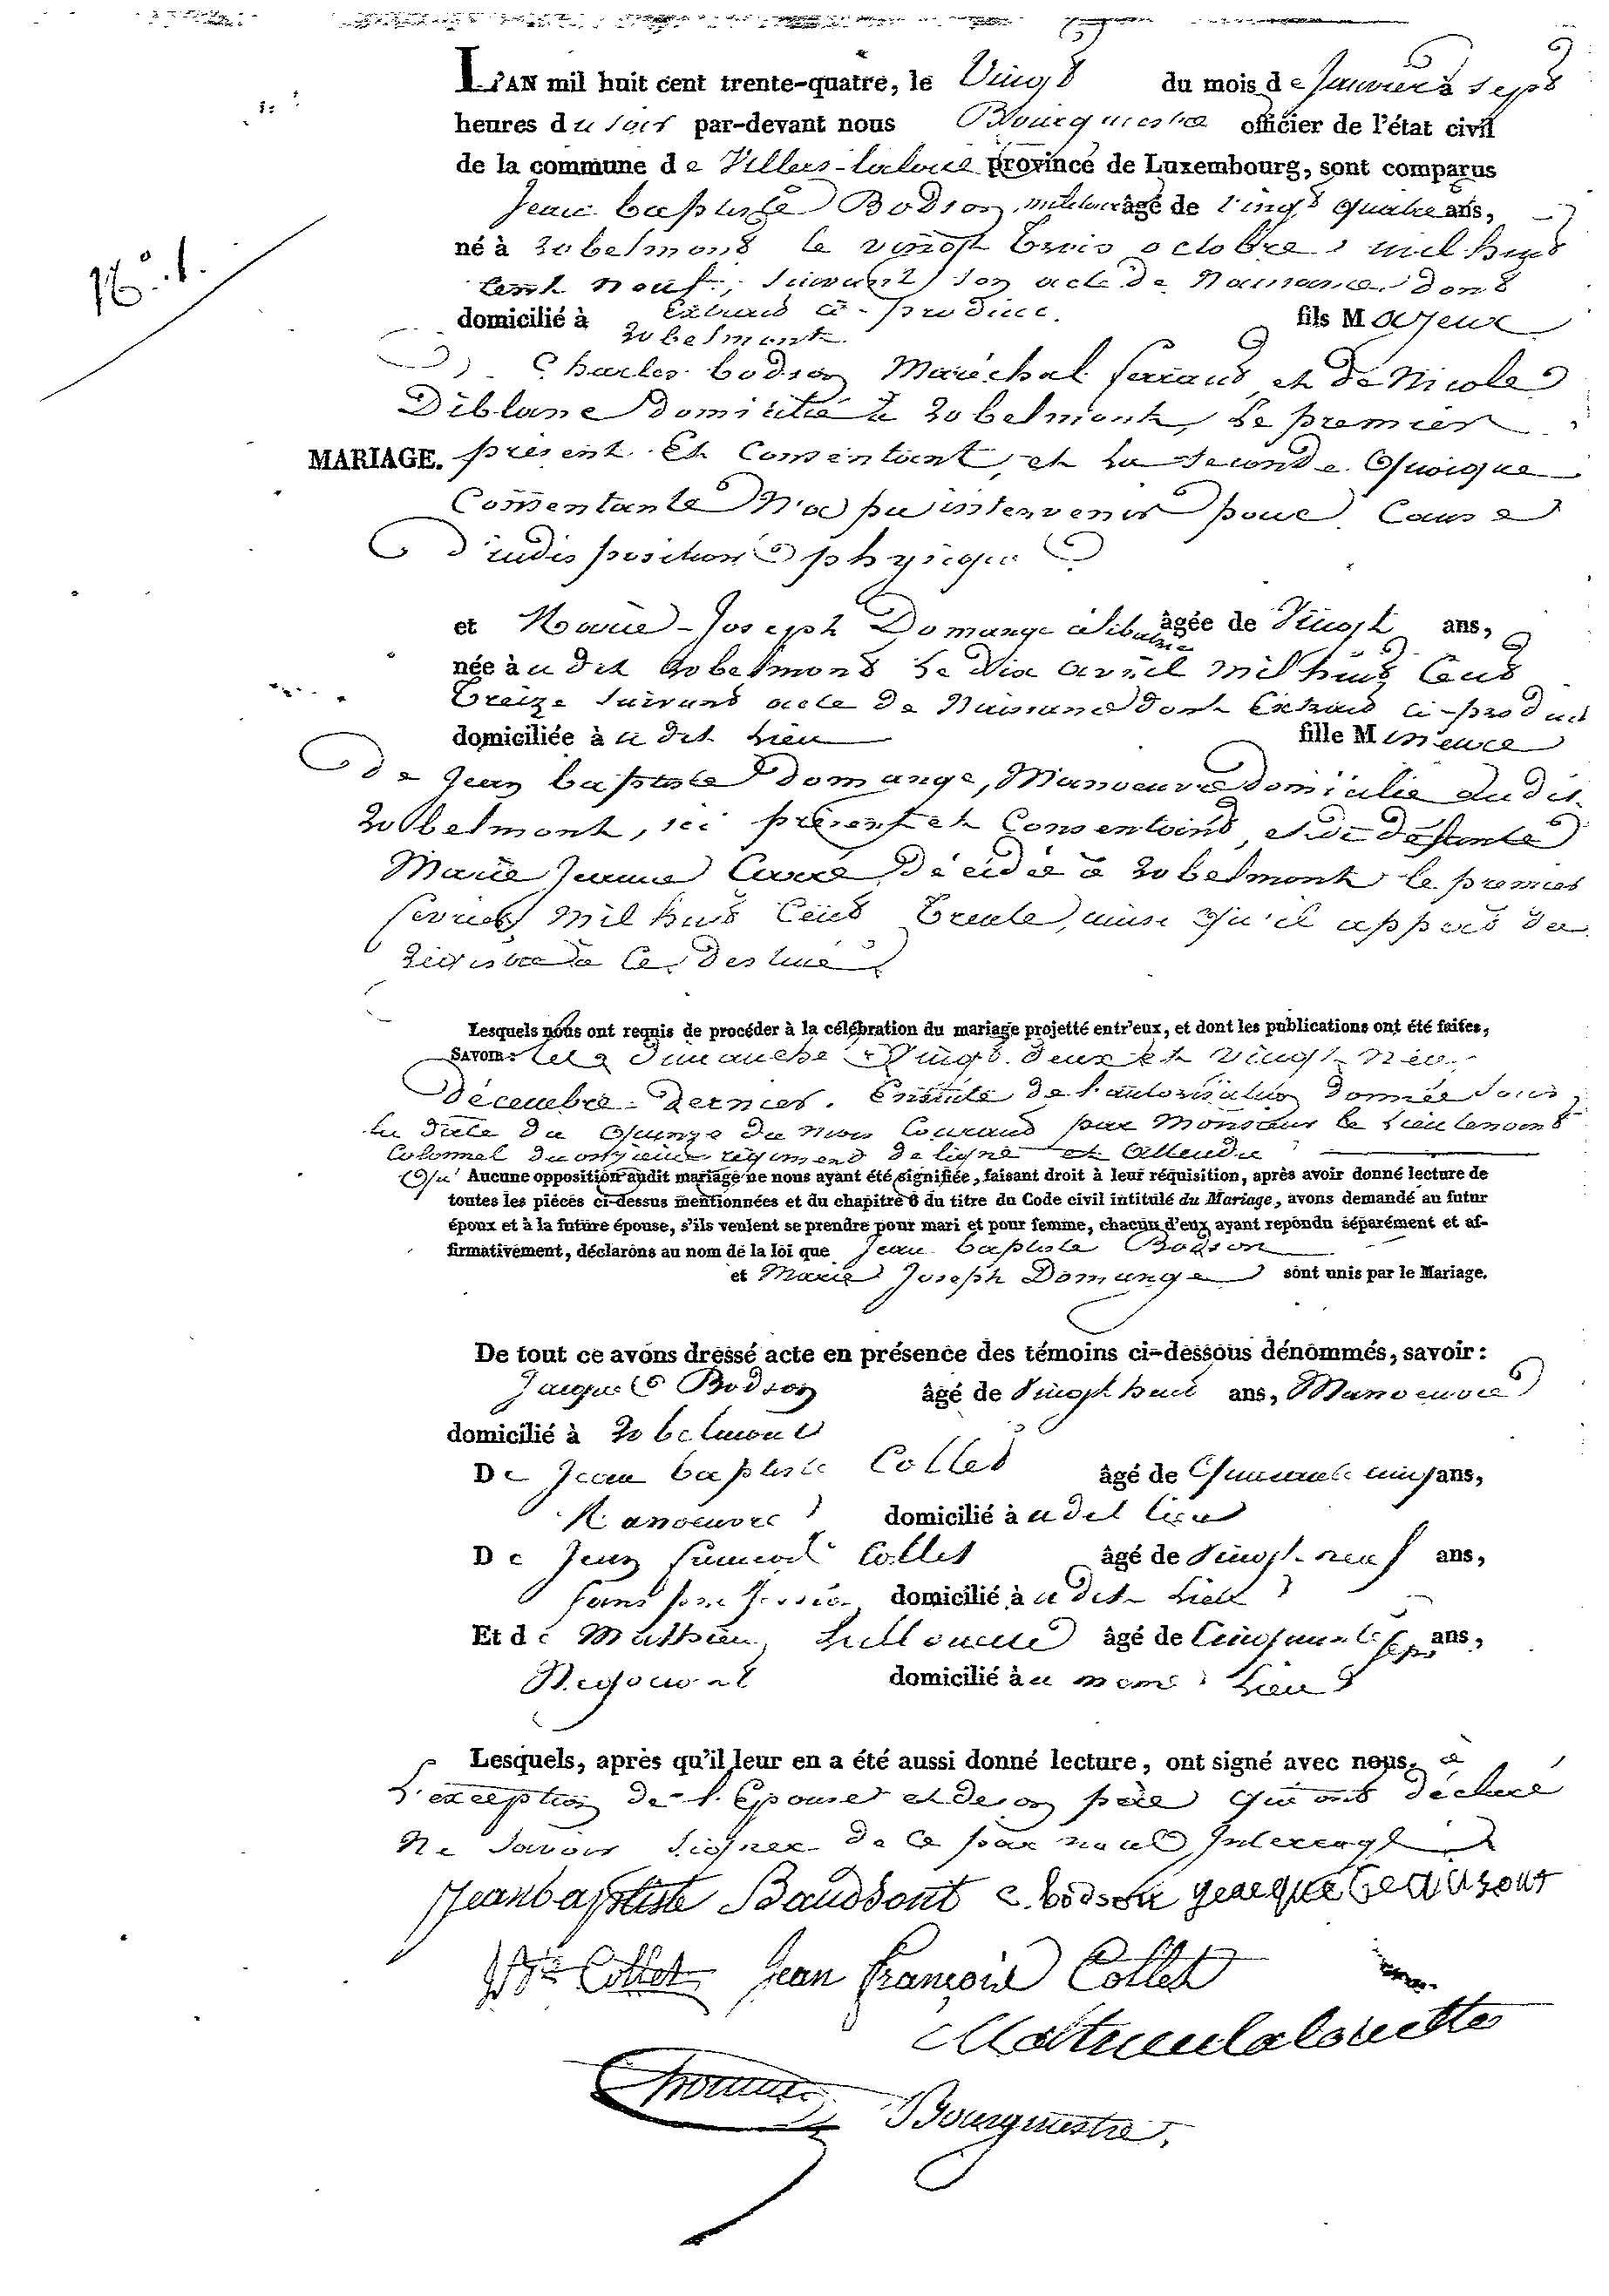 L'AN mil huit cent trente-quatre, le Vingt du mois de Janvier à sept
heures du soir par-devant nous Bourgmestre officier de l'état civil
de la commune de Villers-laloue province de Luxembourg, sont comparus
Jean baptiste Bodson, âgé de vingt quatre ans,
né à Robelmont le vingt trois octobre mil huit
cent neuf, suivant son acte de Naissance dont
extrait ci-produit.
domicilié à Robelmont. fils Majeur
N° 1.
Charles bodson Maréchal ferrant et de Nicole
Diblane domicilié à Robelmont, le premier
MARIAGE. présent et Consentant, et la seconde quoique
Consentante N'a pu intervenir pour Cause
d'indisposition physique
et Marie-Joseph Domange célibataire âgée de Vingt ans,
née àudit Robelmont le dix avril mil huit Cent
treize suivant acte de Naissance dont Extrait ci-produit
domiciliée àudit Lieu fille Mineure
de Jean baptiste domange, Manoeuvre domicilié audit
Robelmont, ici présent et Consentant, et de défunte
Marie Jeanne Carré décédée à Robelmont le premier
février mil huit Cent trente, ainsi qu'il appert du
Registre à Ce destiné
Lesquels nous ont requis de procéder à la célébration du mariage projetté entr'eux, et dont les publications ont été faites,
SAVOIR: les dimanche Vingt deux et vingt neuf
décembre dernier. Ensuite de l'autorisation donnée sous
la date du quinze du mois Courant par Monsieur le Lieutenant
Colonel du onzième régiment de ligne et Attendu
Qu' Aucune opposition audit mariage ne nous ayant été signifiée, faisant droit à leur réquisition, après avoir donné lecture de
toutes les piéces ci-dessus mentionnées et du chapitre 6 du titre du Code civil intitulé du Mariage, avons demandé au futur
époux et à la future épouse, s'ils veulent se prendre pour mari et pour femme, chacun d'eux ayant repondu séparément et af-
firmativement, déclarons au nom de la loi que Jean baptiste Bodson
et Marie Joseph Domange sont unis par le Mariage.
De tout ce avons dressé acte en présence des témoins ci-dessous dénommés, savoir:
Jacques Bodson âgé de Vingt huit ans, Manoeuvre
domicilié à Robelmont
De Jean baptiste Collet âgé de Quarante cinq ans,
Manoeuvre domicilié àudit lieu
De Jean francois Collet âgé de Vingt-neuf ans,
sans profession domicilié àudit Lieu
Et de Mathieu Lallouette âgé de Cinquante sept ans,
Négociant domicilié àu meme Lieu
Lesquels, après qu'il leur en a été aussi donné lecture, ont signé avec nous. à
L'exception de l'Epouse et de son père qui ont déclaré
Ne savoir signer de Ce par nous Interrogé
Jeanbaptiste Baudsont C. bodson
Collet Jean François Collet
Lalouette
Bourgmestre.